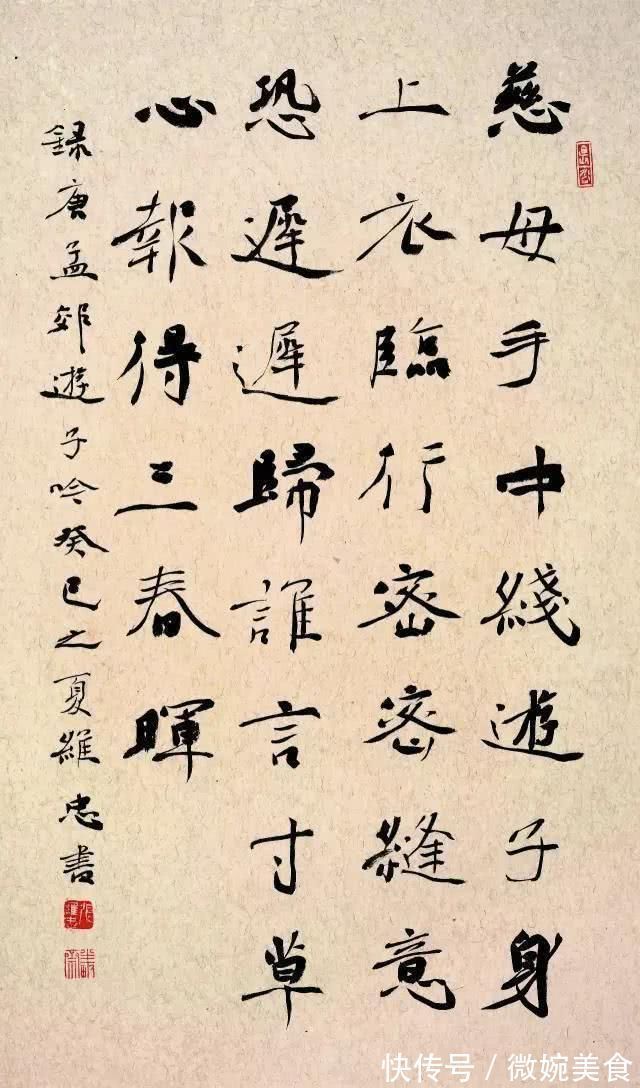 慈母手中綫遊子身
上衣臨行密密縫意
恐遲遲歸誰言寸草
心報得三春暉
録唐孟郊遊子吟癸巳之夏維忠書
快传号 / 微婉美食